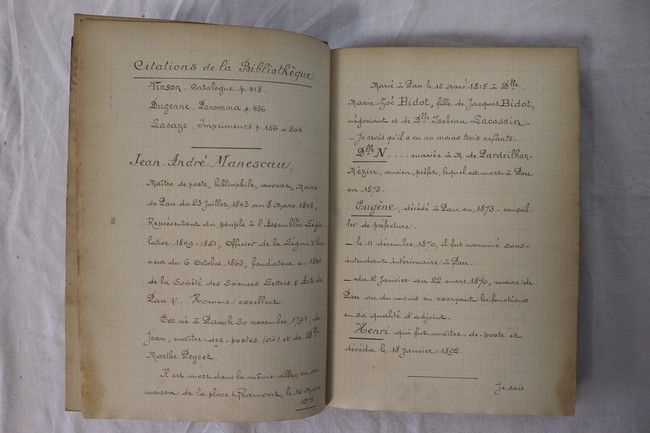 Citations de la Bibliothèque
Vinson - Catalogue p. 418.
Dugenne. Panorama p. 436
Lacaze. Imprimeurs p. 156 & 204
Jean-André Manescau,
Maître de poste, bibliophile, avocat, Maire
de Pau du 23 juillet 1843 au 8 Mars 1848,
Représentant du peuple à l'Assemblée Légis-
lative 1849-1851, Officier de la Légion d'hon-
neur du 6 Octobre 1863, fondateur en 1841
de la Société des Sciences Lettres & Arts de
Pau &. - Homme excellent.
Est né à Pau le 30 novembre 1791, de
Jean, maître des postes et de Dlle
Marthe Peycet.
Il est mort dans la même ville, en sa
maison de la place Gramont, le 16 Mars
1875
Marié à Pau le 15 Mars 1815 à Dlle
Marie Zoé Bidot, fille de Jacques Bidot,
négociant et de Dlle Isabeau Lacassin
- Je crois qu'il a eu au moins trois enfants.
Dlle N.... mariée à M. de Pardeilhan-
Mézin, ancien préfet, lequel est mort à Pau
en 1873.
Eugène, décédé à Pau en 1873 - conseil-
ler de préfecture.
- le 11 décembre 1870, il fut nommé sous-
intendant intérimaire à Pau.
- du 2 Janvier au 22 mars 1870, maire de
Pau ou du moins en exerçant les fonctions
en sa qualité d'adjoint.
Henri qui fut maître-de-poste et
décéda le 18 Janvier 1892.
Je sais